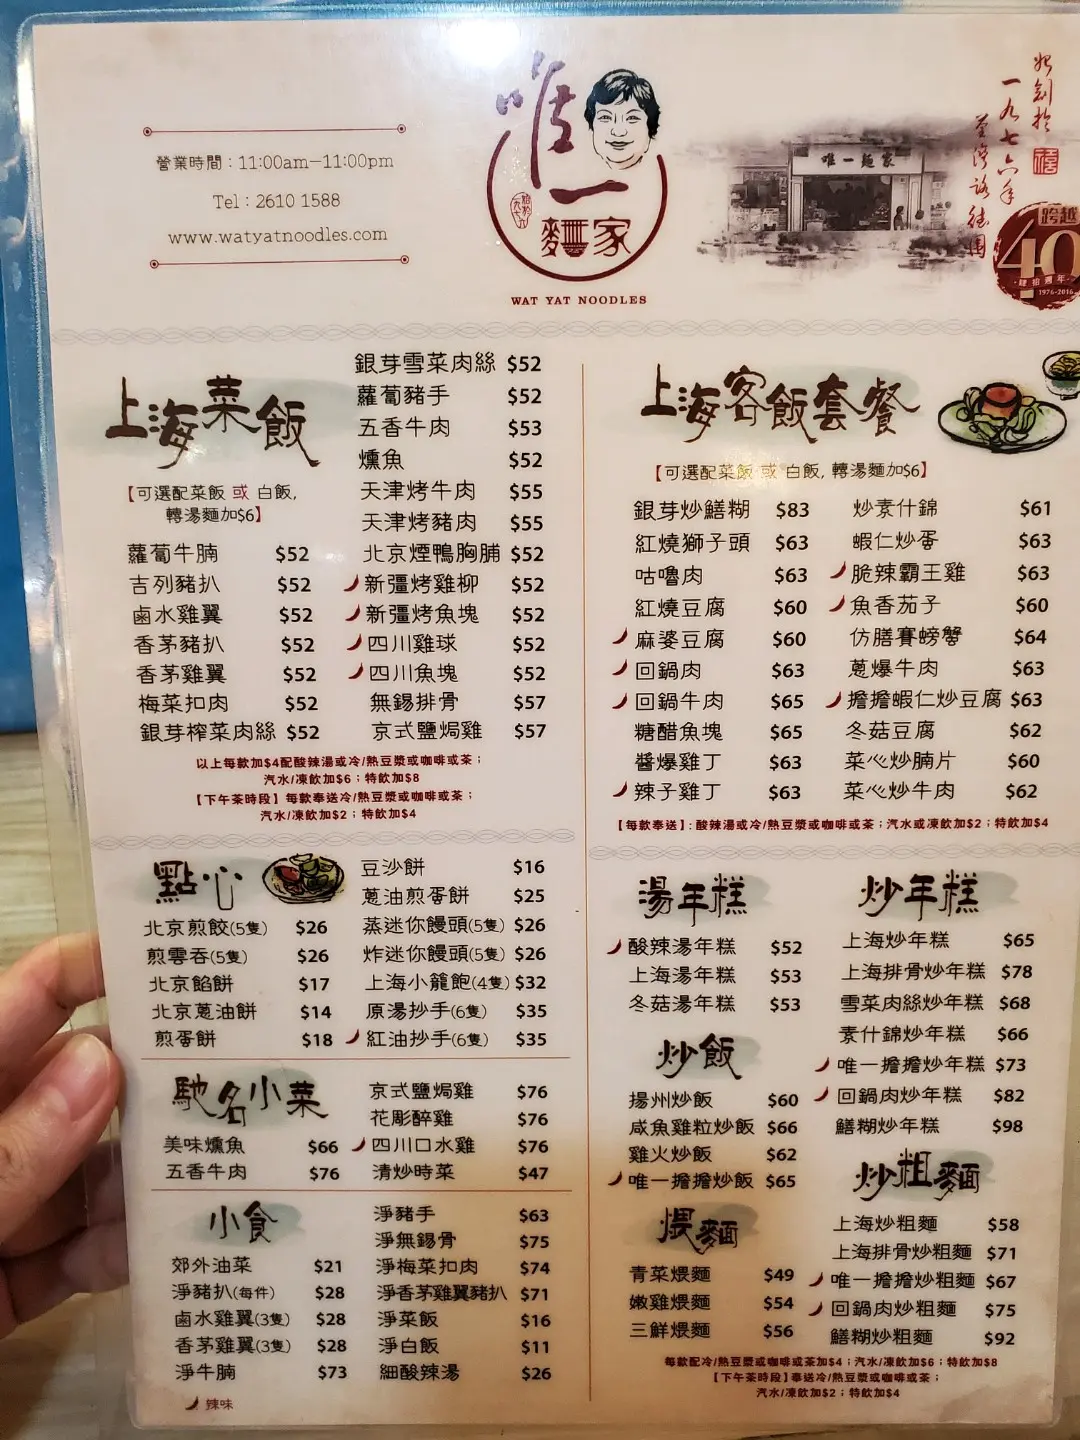 營業時間：11:00am—11:00pm
Tel：2610 1588
www.watyatnoodles.com
唯一
麵家
WAT YAT NOODLES
唯一麵家
始創於
一九七六年
荃灣路德圍
跨越
40
1976-2016
上海菜飯
【可選配菜飯 或 白飯,
轉湯麵加$6】
蘿蔔牛腩 $52
吉列豬扒 $52
鹵水雞翼 $52
香茅豬扒 $52
香茅雞翼 $52
梅菜扣肉 $52
銀芽榨菜肉絲 $52
銀芽雪菜肉絲 $52
蘿蔔豬手 $52
五香牛肉 $53
燻魚 $52
天津烤牛肉 $55
天津烤豬肉 $55
北京煙鴨胸脯 $52
新疆烤雞柳 $52
新疆烤魚塊 $52
四川雞球 $52
四川魚塊 $52
無錫排骨 $57
京式鹽焗雞 $57
以上每款加$4配酸辣湯或冷/熱豆漿或咖啡或茶；
汽水/凍飲加$6；特飲加$8
【下午茶時段】每款奉送冷/熱豆漿或咖啡或茶；
汽水/凍飲加$2；特飲加$4
點心
北京煎餃(5隻) $26
煎雲吞(5隻) $26
北京餡餅 $17
北京蔥油餅 $14
煎蛋餅 $18
豆沙餅 $16
蔥油煎蛋餅 $25
蒸迷你饅頭(5隻) $26
炸迷你饅頭(5隻) $26
上海小籠飽(4隻) $32
原湯抄手(6隻) $35
紅油抄手(6隻) $35
馳名小菜
美味燻魚 $66
五香牛肉 $76
京式鹽焗雞 $76
花彫醉雞 $76
四川口水雞 $76
清炒時菜 $47
小食
郊外油菜 $21
淨豬扒(每件) $28
鹵水雞翼(3隻) $28
香茅雞翼(3隻) $28
淨牛腩 $73
淨豬手 $63
淨無錫骨 $75
淨梅菜扣肉 $74
淨香茅雞翼豬扒 $71
淨菜飯 $16
淨白飯 $11
細酸辣湯 $26
辣味
上海客飯套餐
【可選配菜飯 或 白飯, 轉湯麵加$6】
銀芽炒鱔糊 $83
紅燒獅子頭 $63
咕嚕肉 $63
紅燒豆腐 $60
麻婆豆腐 $60
回鍋肉 $63
回鍋牛肉 $65
糖醋魚塊 $65
醬爆雞丁 $63
辣子雞丁 $63
炒素什錦 $61
蝦仁炒蛋 $63
脆辣霸王雞 $63
魚香茄子 $60
仿膳賽螃蟹 $64
蔥爆牛肉 $63
擔擔蝦仁炒豆腐 $63
冬菇豆腐 $62
菜心炒腩片 $60
菜心炒牛肉 $62
【每款奉送】: 酸辣湯或冷/熱豆漿或咖啡或茶；汽水或凍飲加$2；特飲加$4
湯年糕
酸辣湯年糕 $52
上海湯年糕 $53
冬菇湯年糕 $53
炒飯
揚州炒飯 $60
咸魚雞粒炒飯 $66
雞火炒飯 $62
唯一擔擔炒飯 $65
煨麵
青菜煨麵 $49
嫩雞煨麵 $54
三鮮煨麵 $56
炒年糕
上海炒年糕 $65
上海排骨炒年糕 $78
雪菜肉絲炒年糕 $68
素什錦炒年糕 $66
唯一擔擔炒年糕 $73
回鍋肉炒年糕 $82
鱔糊炒年糕 $98
炒粗麵
上海炒粗麵 $58
上海排骨炒粗麵 $71
唯一擔擔炒粗麵 $67
回鍋肉炒粗麵 $75
鱔糊炒粗麵 $92
每款配冷/熱豆漿或咖啡或茶加$4；汽水/凍飲加$6；特飲加$8
【下午茶時段】奉送冷/熱豆漿或咖啡或茶；
汽水/凍飲加$2；特飲加$4